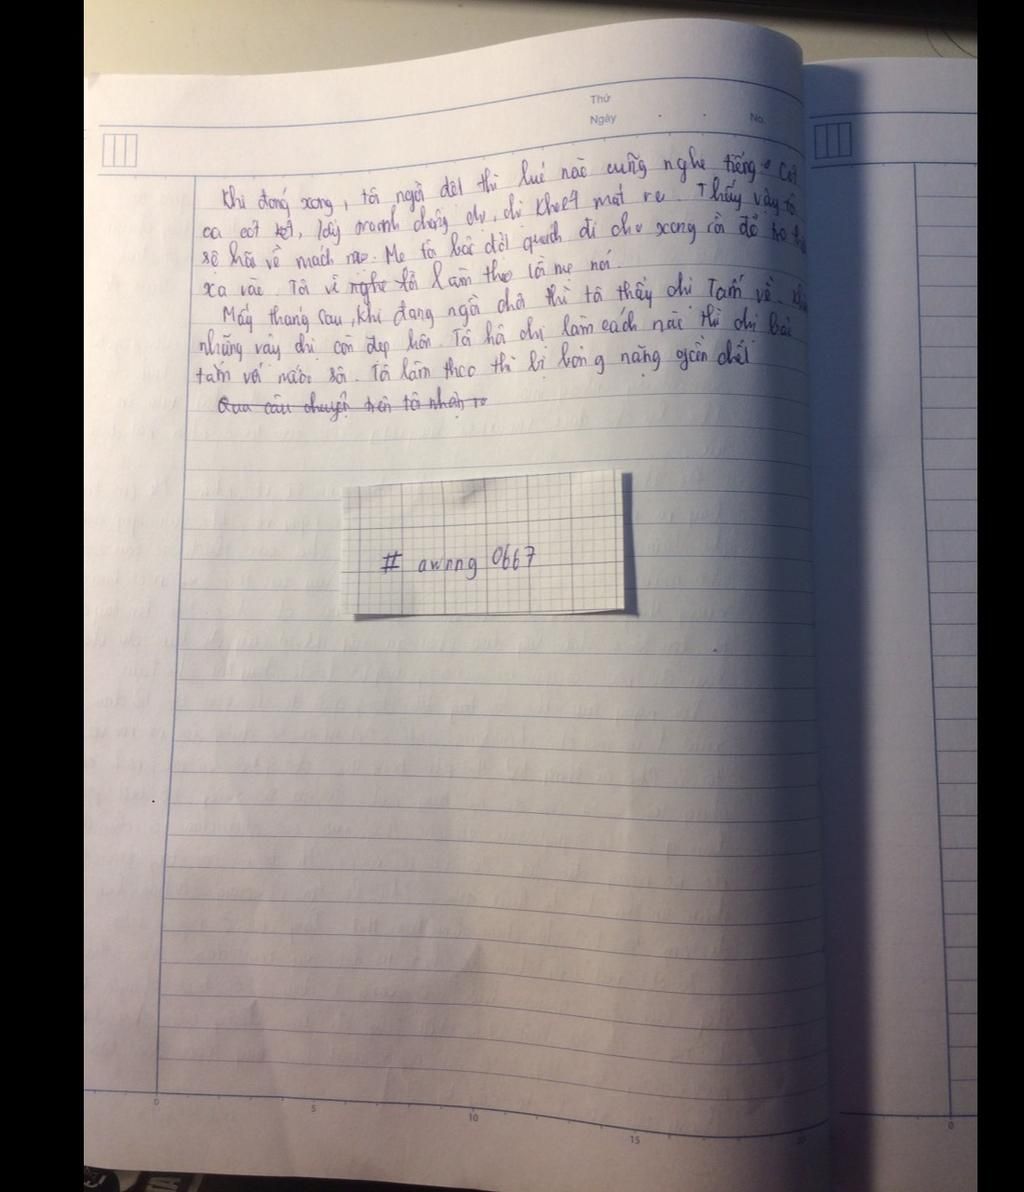 Thứ
Ngày No.
Khi đóng xong, tôi ngồi dệt thì lúc nào cũng nghe tiếng Cót
ca cót két, lấy tranh chồng chị, chị khoét mắt ra. Thấy vậy tô
sợ hãi về mách mẹ. Mẹ tôi bảo đốt quách đi cho xong rồi đổ tro
xa vào. Tôi về nghe tôi làm theo lời mẹ nói.
Mấy tháng sau, khi đang ngồi chơi thì tô thấy chị Tấm về.
những vậy chị còn đẹp hơn. Tô hỏi chị làm cách nào thì chị bảo
tắm với nước sôi. Tôi làm theo thì bị bỏng nặng gần chết
Qua câu chuyện trên tô nhận ra
# awnng 0667
0 5 10 15 20
0